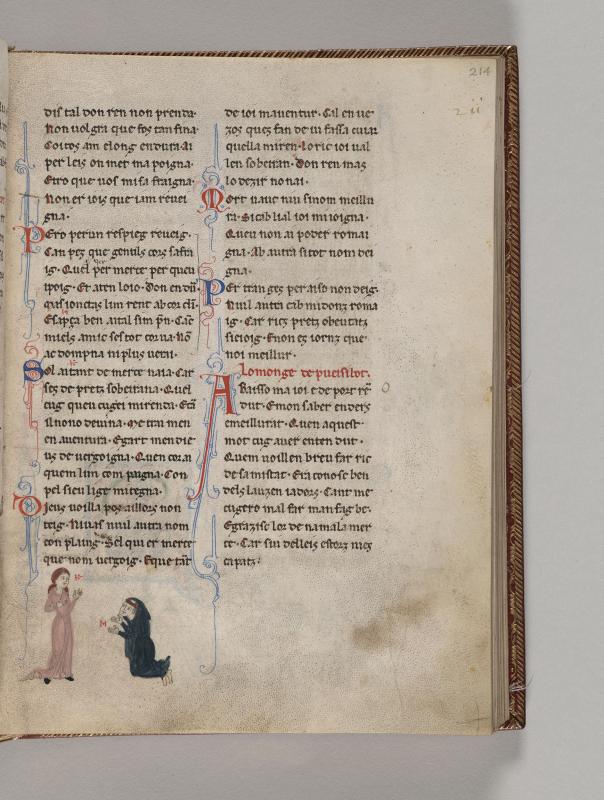 214
dis tal don ren non prenda.
Non uol gra que fos tan fina
Co tos am e long endura. Ai
per leis on mer ma poigna.
Etro que uos mi fa fraigna.
Non er iois que iam reuei
gna.
Pero per un respieg reueig.
ig. Quel per merce per queu
miels amic ses tot corna. No
ac dompna ni plus uern.
Sol aitant de merce naia. Car
ses de pretz sobeirana. Quel
cug queu cugei mirenda. Eti
il no no deuina. Me trai men
en auentura. Egart men die
us de uergoigna. Quen corai
quem lim com paigna. Con
pel sieu lige mi tegna.
Dieus uoilla pos aillors non
teig. Ni uas nuil autra nom
con plaing. Sel qui er merce
que nom uergoig. E que tant
de ioi mauentur. Cal en ue
zos ques fan de iu fassa curar
quella miren. loric ioi ual
len sobeiran. Don ren mas
lo dezir no nai.
Mort nauc nuil sinom meillu
ra. Sicab lial ioi mi ioigna.
Queu non ai poder romai
gna. Ab autra si tot nom dei
gna.
Per tran ges per aiso non deig.
Nuil autra cab midonz roma
ig. Car ric pretz obeutatz
sieioig. E non es iornz que
noi meillur.
Lo monge de pueisibot.
Abaisso ma ioi e deport re
dut. E mon saber enders
emeillurat. Quen aquest
mot cug auer enten dut.
Quem uoillen breu far ric
de samistat. Era conosc ben
dels lauzen iadors. Cant me
cugero mal far man fag be.
E grazisc lor de na mala mer
ce. Car sin delleis estorz nies
capatz.